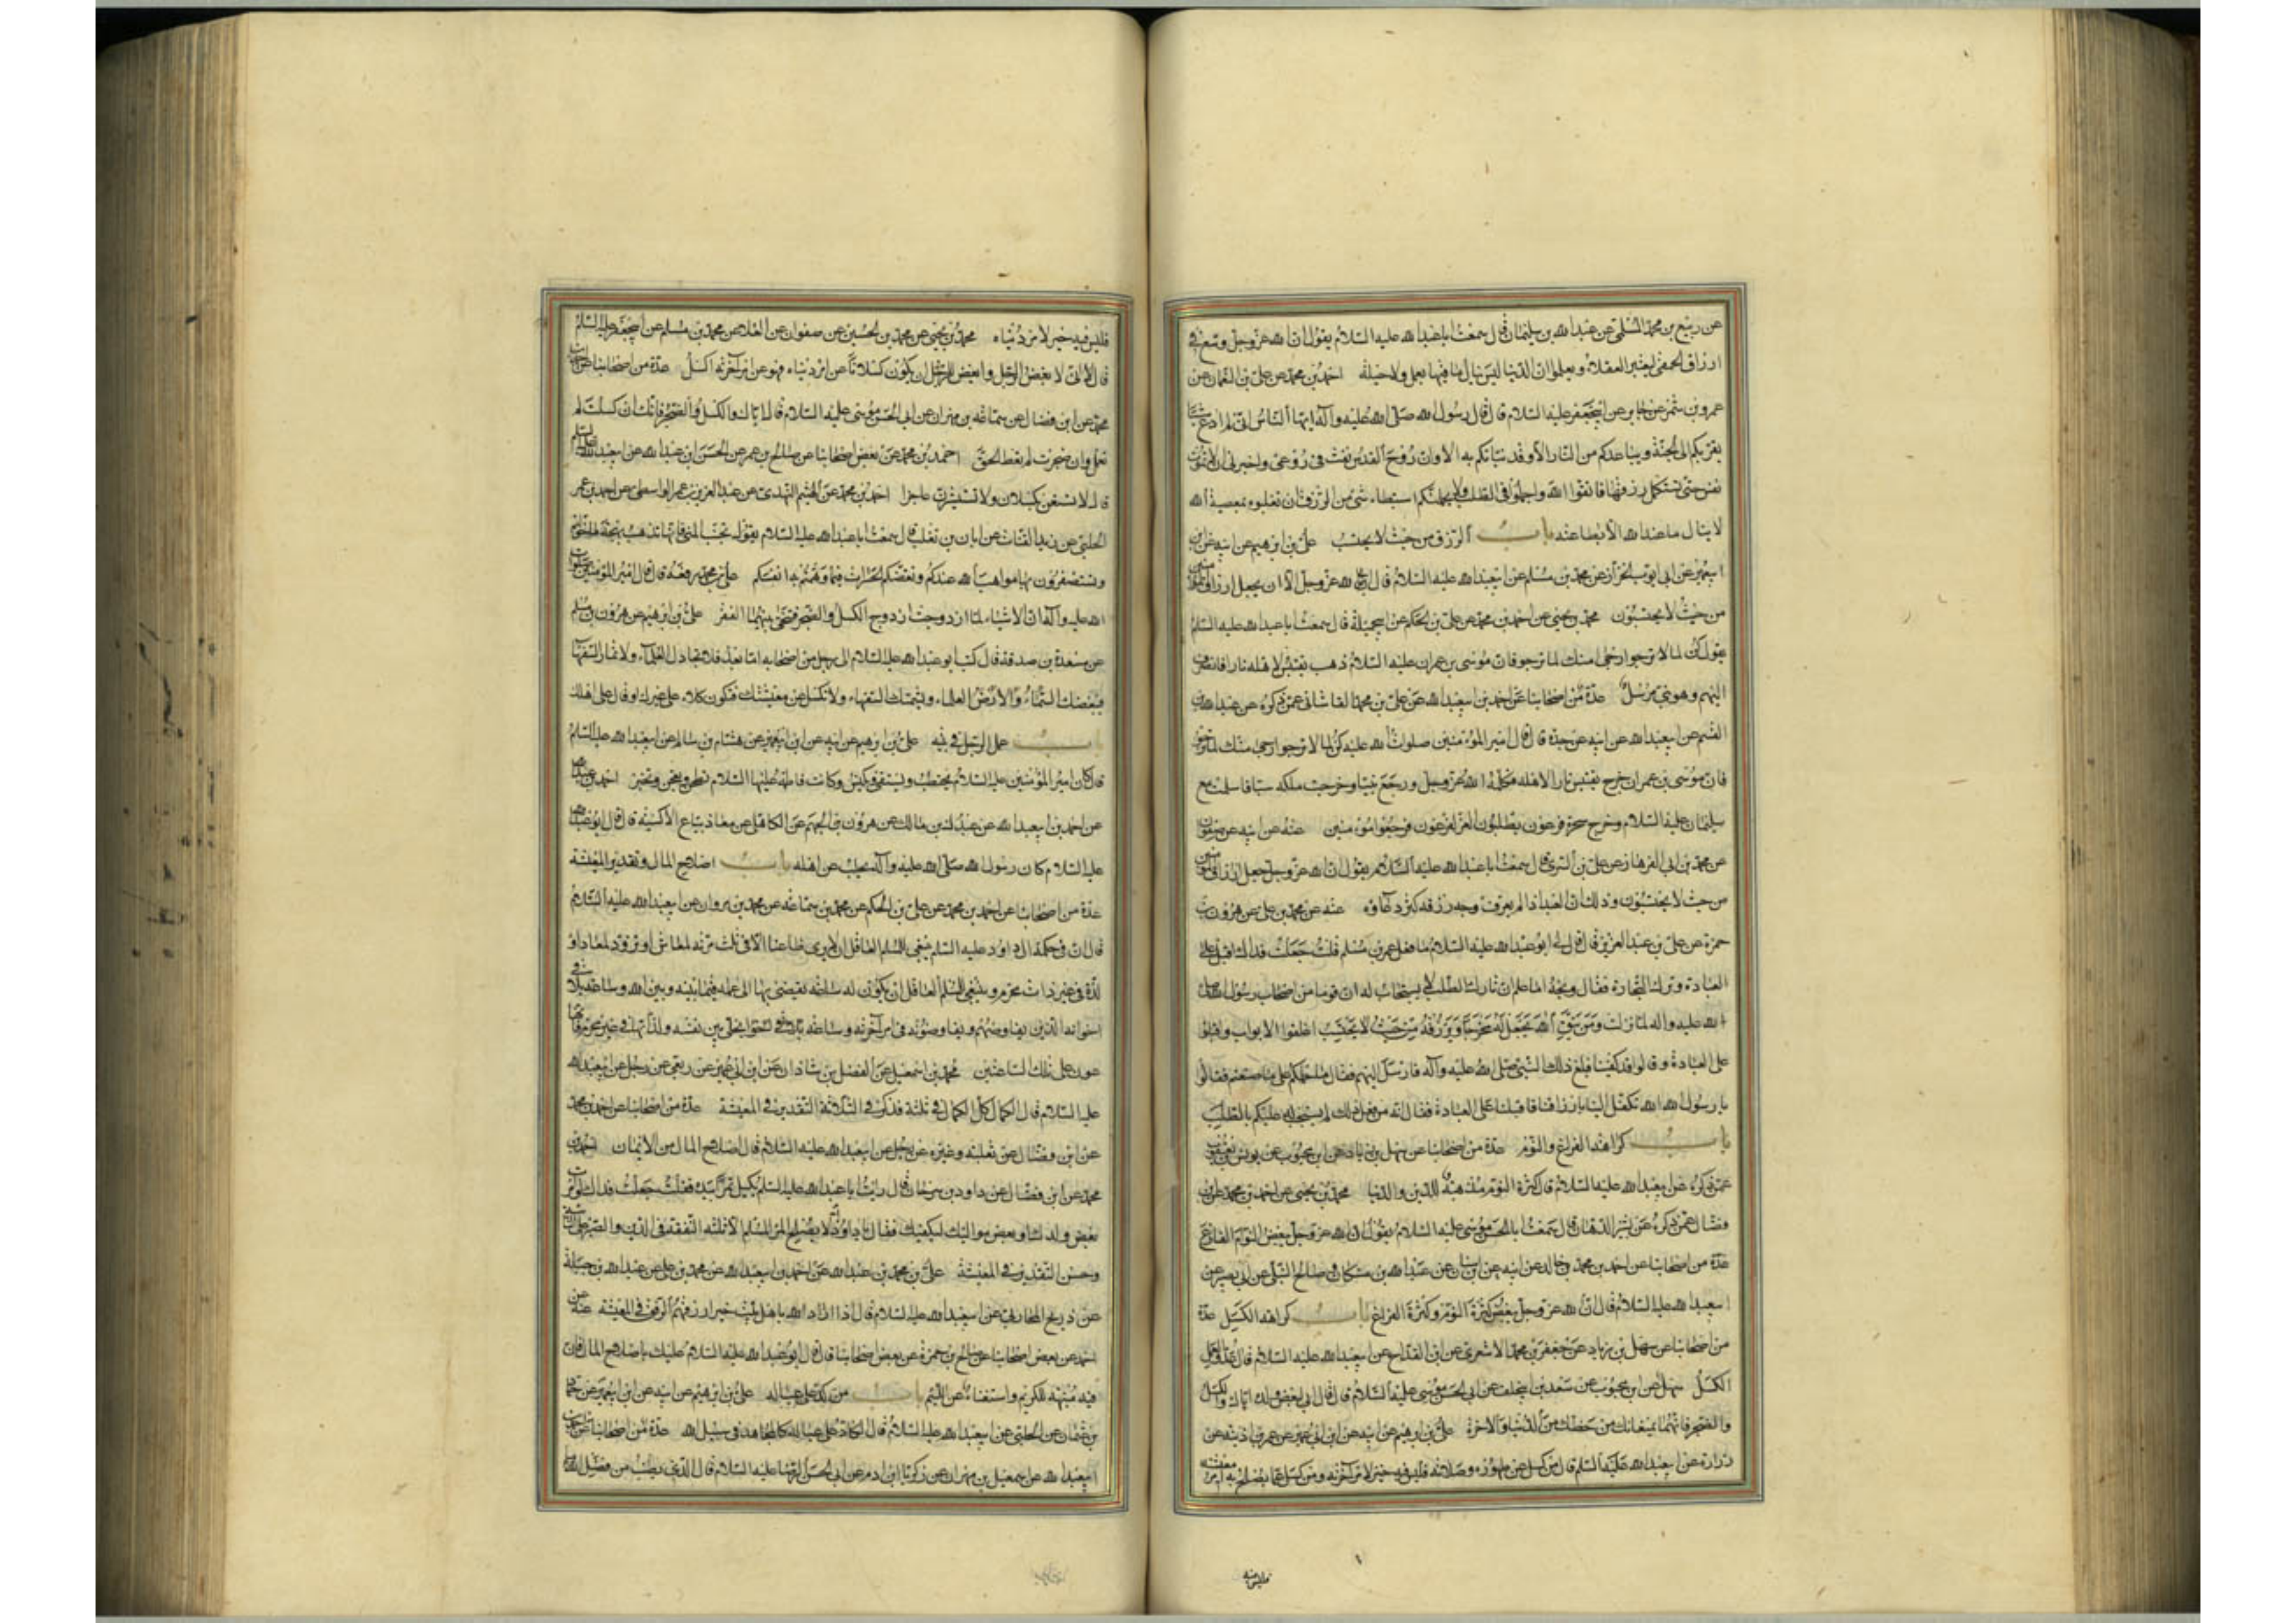 عن ربيع بن محمد المسلي عن عبد الله بن سليمان قال سمعت ابا عبد الله عليه السلام يقول ان الله عز وجل وسع في
ارزاق الحمقى ليعتبر العقلاء ويعلموا ان الدنيا ليس ينال ما فيها بعمل ولا حيلة احمد بن محمد عن علي بن النعمان عن
عمرو بن شمر عن جابر عن ابي جعفر عليه السلام قال قال رسول الله صلى الله عليه وآله ايها الناس اني لم ادع شيئا
يقربكم الى الجنة ويباعدكم من النار الا وقد نباتكم به الا وان روح القدس نفث في روعي واخبرني ان لا تموت
نفس حتى تستكمل رزقها فاتقوا الله واجملوا في الطلب ولا يحملنكم استبطاء شئ من الرزق ان تطلبوه بمعصية الله
لا ينال ما عند الله الا بطاعته باب الرزق من حيث لا يحتسب علي بن ابرهيم عن ابيه عن ابن
ابي عمير عن ابي ايوب الخزاز عن محمد بن مسلم عن ابي عبد الله عليه السلام قال ابى الله عز وجل الا ان يجعل ارزاق المؤمنين
من حيث لا يحتسبون محمد بن يحيى عن احمد بن محمد عن علي بن الحكم عن ابي جميلة قال سمعت ابا عبد الله عليه السلام
يقول كن لما لا ترجوا ارجى منك لما ترجو فان موسى بن عمران عليه السلام ذهب يقتبس لاهله نارا فانصرف
اليهم وهو نبي مرسل عدة من اصحابنا عن احمد بن ابي عبد الله عن علي بن محمد القاشاني عمن ذكره عن عبد الله بن
القسم عن ابي عبد الله عن ابيه عن جده قال قال امير المؤمنين صلوات الله عليه كن لما لا ترجو ارجى منك لما ترجو
فان موسى بن عمران خرج يقتبس نارا لاهله فكلمه الله عز وجل ورجع نبيا وخرجت ملكه سبا فاسلمت مع
سليمان عليه السلام وخرج سحرة فرعون يطلبون العز لفرعون فرجعوا مؤمنين عنه عن ابيه عن صفوان
عن محمد بن ابي الهزهاز عن علي بن السري قال سمعت ابا عبد الله عليه السلام يقول ان الله عز وجل جعل ارزاق المؤمنين
من حيث لا يحتسبون وذلك ان العبد اذا لم يعرف وجه رزقه كثر دعاؤه عنه عن محمد بن علي عن هرون بن
حمزة عن علي بن عبد العزيز قال قال لي ابو عبد الله عليه السلام ما فعل عمر بن مسلم قلت جعلت فداك اقبل على
العبادة وترك التجارة فقال ويحه اما علم ان تارك الطلب لا يستجاب له ان قوما من اصحاب رسول الله صلى
الله عليه واله لما نزلت ومن يتق الله يجعل له مخرجا ويرزقه من حيث لا يحتسب اغلقوا الابواب واقبلوا
على العبادة وقالوا قد كفينا فبلغ ذلك النبي صلى الله عليه وآله فارسل اليهم فقال ما حملكم على ما صنعتم فقالوا
يا رسول الله تكفل لنا بارزاقنا فاقبلنا على العبادة فقال انه من فعل ذلك لم يستجب له عليكم بالطلب
باب كراهية الفراغ والنوم عدة من اصحابنا عن سهل بن زياد عن ابن محبوب عن يونس بن يعقوب
عمن ذكره عن ابي عبد الله عليه السلام قال كثرة النوم مذهبة للدين والدنيا محمد بن يحيى عن احمد بن محمد عن ابن
فضال عمن ذكره عن بشير الدهان قال سمعت ابا الحسن موسى عليه السلام يقول ان الله عز وجل يبغض النوام الفارغ
عدة من اصحابنا عن احمد بن محمد بن خالد عن ابيه عن ابن سنان عن عبد الله بن مسكان وصالح النيلي عن ابي بصير عن
ابي عبد الله عليه السلام قال ان الله عز وجل يبغض كثرة النوم وكثرة الفراغ باب كراهية الكسل عدة
من اصحابنا عن سهل بن زياد عن جعفر بن محمد الاشعري عن ابن القداح عن ابي عبد الله عليه السلام قال عدو العمل
الكسل سهل عن ابن محبوب عن سعد بن ابي خلف عن ابي الحسن موسى عليه السلام قال قال ابي لبعض ولده اياك والكسل
والضجر فانهما يمنعانك من حظك من الدنيا والاخرة علي بن ابرهيم عن ابيه عن ابن ابي عمير عن عمر بن اذينة عن
زرارة عن ابي عبد الله عليه السلم قال من كسل عن طهوره وصلاته فليس فيه خير لامر آخرته ومن كسل عما يصلح به امر معيشته
فليس فيه
فليس فيه خير لامر دنياه محمد بن يحيى عن محمد بن الحسين عن صفوان عن العلا عن محمد بن مسلم عن ابي جعفر عليه السلم
قال اني لابغض الرجل وابغض للرجل ان يكون كسلانا عن امر دنياه فهو عن امر آخرته اكسل عدة من اصحابنا عن احمد بن
محمد عن ابن فضال عن سماعة بن مهران عن ابي الحسن موسى عليه السلام قال اياك والكسل والضجر فانك ان كسلت لم
تعمل وان ضجرت لم تعط الحق احمد بن محمد عن بعض اصحابنا عن صالح بن عمر عن الحسن ابن عبد الله عن ابي عبد الله عليه السلم
قال لا تستعن بكسلان ولا تستشيرن عاجزا احمد بن محمد عن الهيثم النهدي عن عبد العزيز بن عمر الواسطي عن احمد بن عمر
الحلبي عن زيد القتات عن ابان بن تغلب قال سمعت ابا عبد الله عليه السلام يقول تجنبوا المنى فانها تذهب بهجة ما خولتم
وتستصغرون بها مواهب الله عندكم وتعقبكم الحسرات فيما وهمتم به انفسكم علي بن محمد رفعه قال قال امير المؤمنين صلوات
الله عليه وآله ان الاشياء لما ازدوجت ازدوج الكسل والضجر فنتجا بينهما الفقر علي بن ابرهيم عن هرون بن مسلم
عن مسعدة بن صدقة قال كتب ابو عبد الله عليه السلام الى رجل من اصحابه اما بعد فلا تجادل العلماء ولا تمار السفهاء
فيبغضك العلماء ويشتمك السفهاء ولا تكسل عن معيشتك فتكون كلا على غيرك او قال على اهلك
باب عمل الرجل في بيته علي بن ابرهيم عن ابيه عن ابن ابي عمير عن هشام بن سالم عن ابي عبد الله عليه السلام
قال كان امير المؤمنين عليه السلام يحتطب ويستقي ويكنس وكانت فاطمة عليها السلام تطحن وتعجن وتخبز احمد بن عبد الله
عن احمد بن ابي عبد الله عن عبدل بن مالك عن هرون بن الجهم عن الكاهلي عن معاذ بياع الاكسية قال قال ابو عبد الله
عليه السلام كان رسول الله صلى الله عليه وآله يحلب عنز اهله باب اصلاح المال وتقدير المعيشة
عدة من اصحابنا عن احمد بن محمد عن علي بن الحكم عن محمد بن سماعة عن محمد بن مروان عن ابي عبد الله عليه السلام
قال ان في حكمة ال داود عليه السلم ينبغي للمسلم العاقل ان لا يرى ظاعنا الا في ثلث مرمة لمعاش او تزود لمعاد او
لذة في غير ذات محرم وينبغي للمسلم العاقل ان يكون له ساعة يفضي بها الى عمله فيما بينه وبين الله وساعة يلاقي
اخوانه الذين يفاوضهم ويفاوضونه في امر آخرته وساعة يخلي بين نفسه ولذاتها في غير محرم فانها
عون على تلك الساعتين محمد بن اسمعيل عن الفضل بن شاذان عن ابن ابي عمير عن ربعي عن رجل عن ابي عبد الله
عليه السلام قال الكمال كل الكمال في ثلثة فذكر في الثلاثة التقدير في المعيشة عدة من اصحابنا عن احمد بن محمد
عن ابن فضال عن ثعلبة وغيره عن رجل عن ابي عبد الله عليه السلام قال اصلاح المال من الايمان احمد بن
محمد عن ابن فضال عن داود بن سرحان قال رايت ابا عبد الله عليه السلم يكيل تمرا بيده فقلت جعلت فداك لو امرت
بعض ولدك او بعض مواليك فيكفيك فقال يا داود انه لا يصلح المرء المسلم الا ثلثة التفقه في الدين والصبر على النائبة
وحسن التقدير في المعيشة علي بن محمد بن عبد الله عن احمد بن ابي عبد الله عن محمد بن علي عن عبد الله بن جبلة
عن ذريح المحاربي عن ابي عبد الله عليه السلام قال اذا اراد الله باهل بيت خيرا رزقهم الرفق في المعيشة عنه عن
عن بعض اصحابنا عن صالح بن حمزة عن بعض اصحابنا قال قال ابو عبد الله عليه السلام عليك باصلاح المال فان
فيه منبهة للكريم واستغناء عن اللئيم باب من كد على عياله علي بن ابرهيم عن ابيه عن ابن ابي عمير عن حماد
بن عثمان عن الحلبي عن ابي عبد الله عليه السلام قال الكاد على عياله كالمجاهد في سبيل الله عدة من اصحابنا عن احمد بن
ابي عبد الله عن اسمعيل بن مهران عن زكريا ابن ادم عن ابي الحسن الرضا عليه السلام قال الذي يطلب من فضل الله